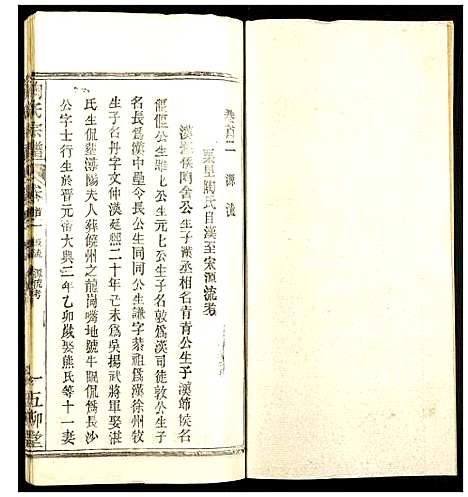 卷首二 源流
栗里陶氏自漢至宋源流考
漢 侯陶舍公生子漢丞相名青青公生子漢節侯名
偃偃公生 七公生元七公生子名敦為漢司徒敦公生子
名長為漢中壘令長公生同同公生謙字恭祖為漢徐州牧
生子名丹字文仲漢延熙二十年己未為吳揚武將軍娶湛
氏生侃墓潯陽夫人葬饒州之龍崗嘴地號牛眠侃為長沙
公字士行生於晉元帝大興三年乙卯歲娶熊氏等十一妻
陶氏宗譜
卷首二
源流
源流考
一
五柳堂